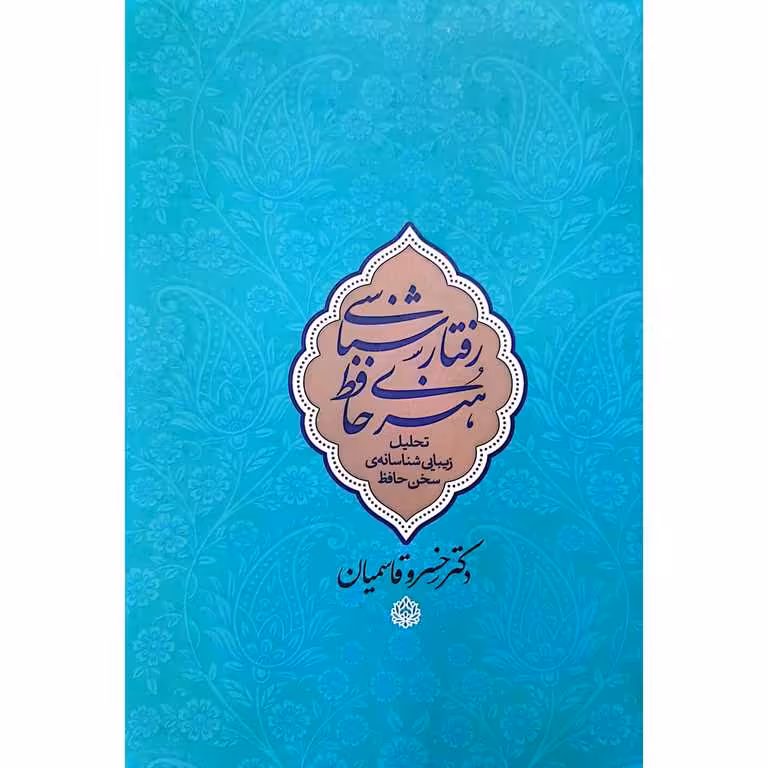 رفتارشناسی
هنری حافظ
تحلیل
زیبایی‌شناسانه‌ی
سخن حافظ
دکتر خسرو قاسمیان